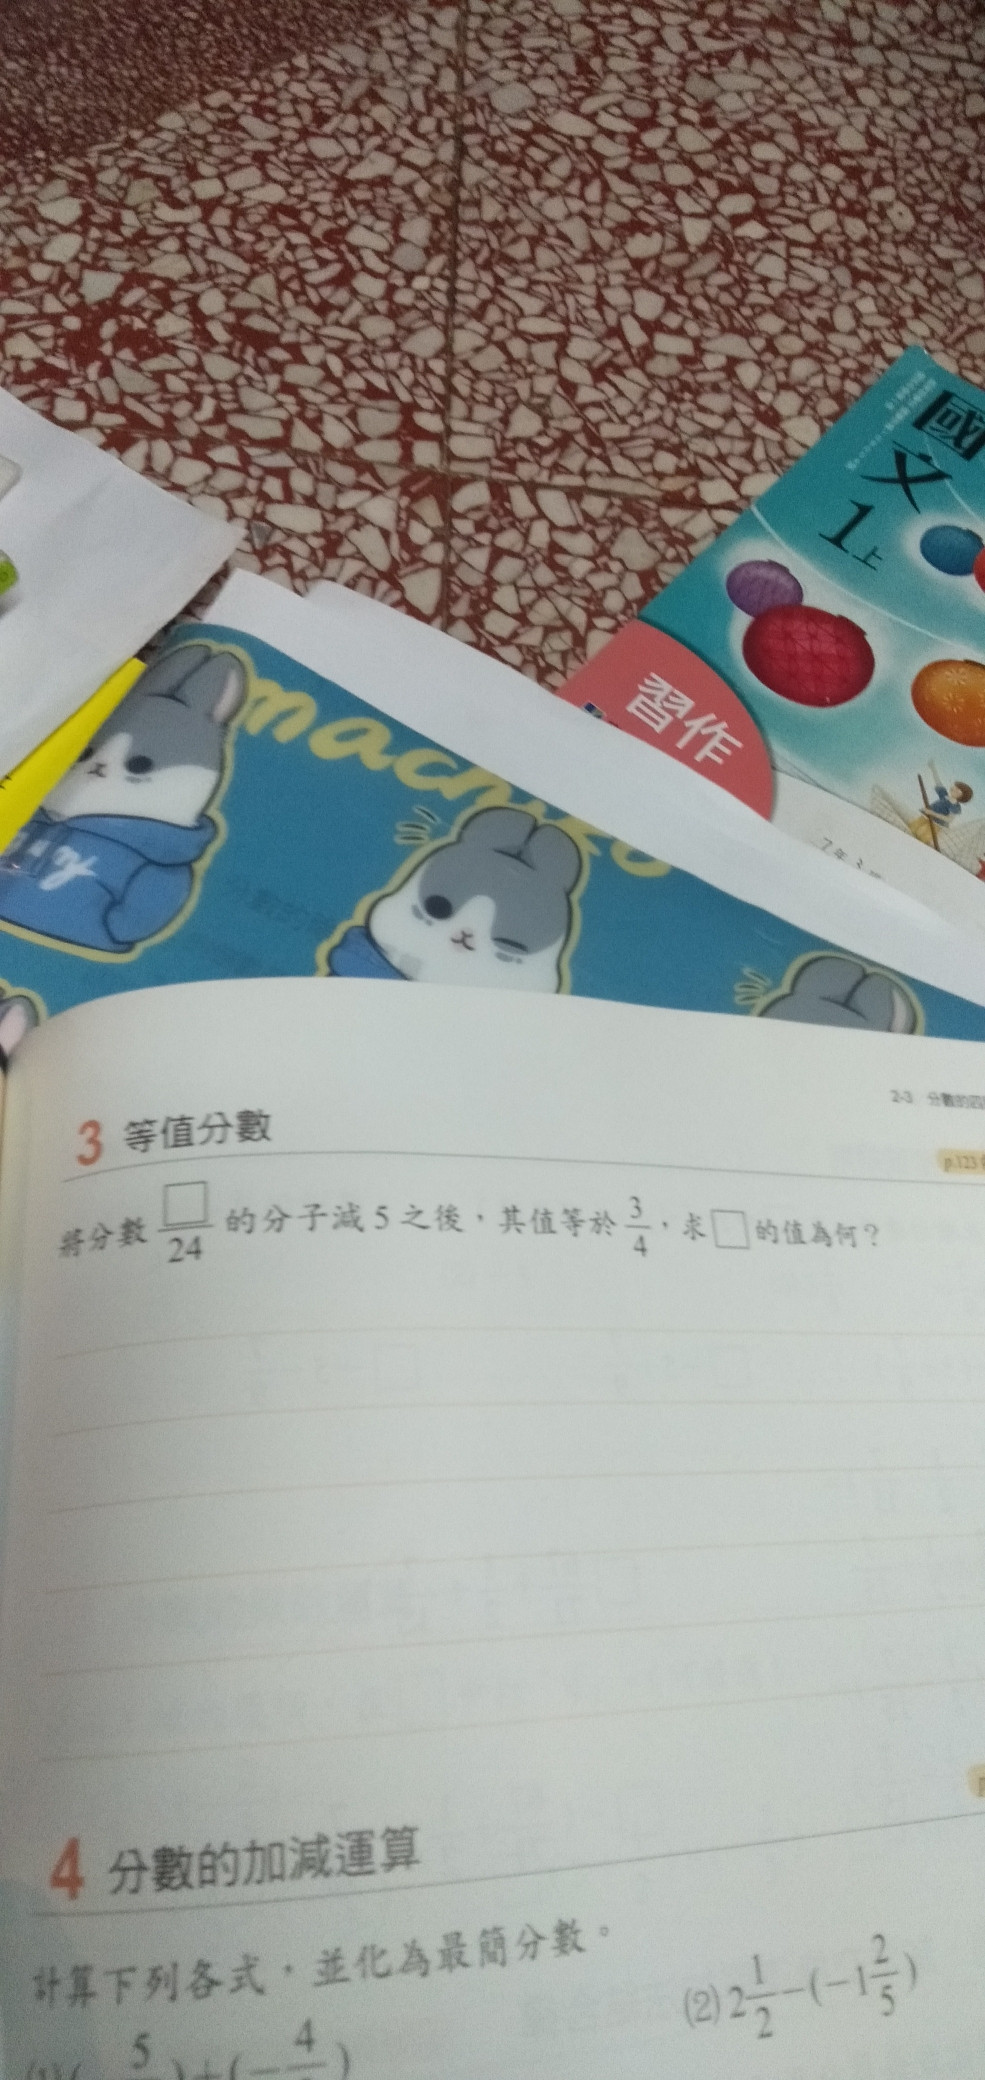 國
文
1上
習作
machiko
2-3 分數的四
p.123
3 等值分數
將分數 □/24 的分子減 5 之後，其值等於 3/4，求 □ 的值為何？
4 分數的加減運算
計算下列各式，並化為最簡分數。
(2) 2 1/2 −(−1 2/5)
5 )+(− 4 )